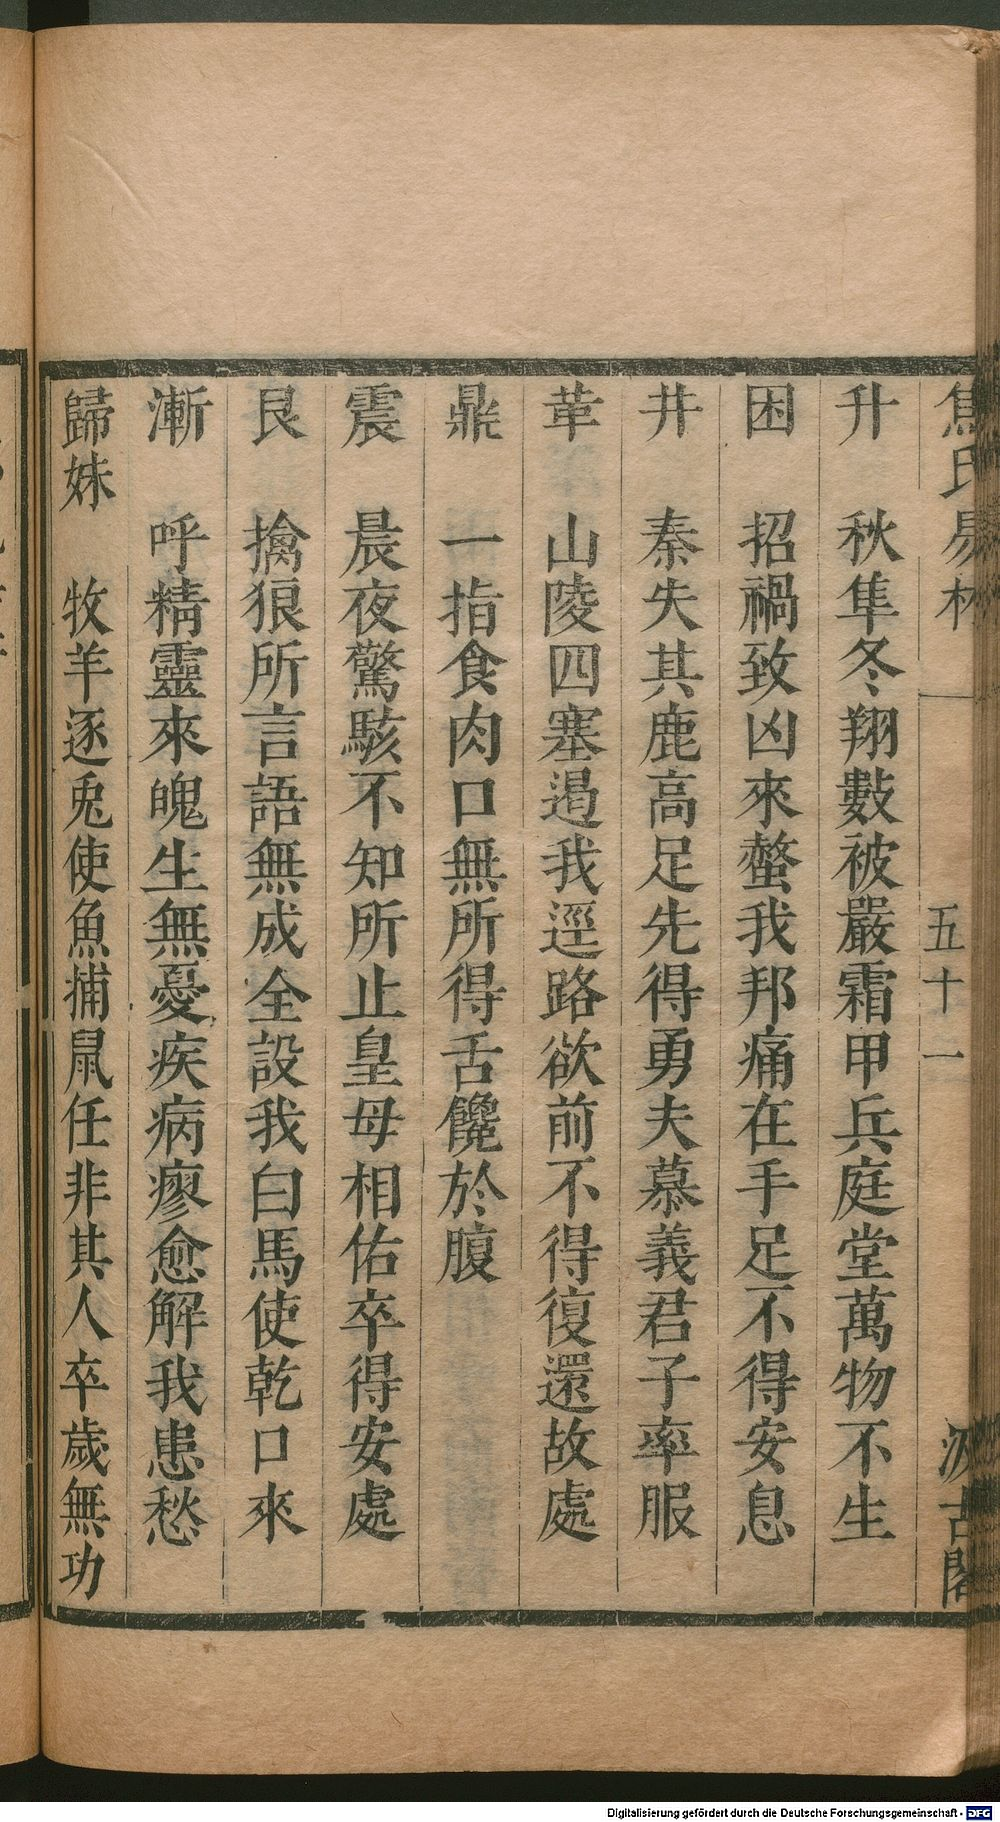 焦氏易林 五十一 汲古閣
升 秋隼冬翔數被嚴霜甲兵庭堂萬物不生
困 招禍致凶來螫我邦痛在手足不得安息
井 秦失其鹿高足先得勇夫慕義君子率服
革 山陵四塞遏我逕路欲前不得復還故處
鼎 一指食肉口無所得舌饞於腹
震 晨夜驚駭不知所止皇母相佑卒得安處
艮 擒狼所言語無成全設我白馬使乾口來
漸 呼精靈來魄生無憂疾病瘳愈解我患愁
歸妹 牧羊逐兎使魚捕鼠任非其人卒歲無功
Digitalisierung gefördert durch die Deutsche Forschungsgemeinschaft - DFG